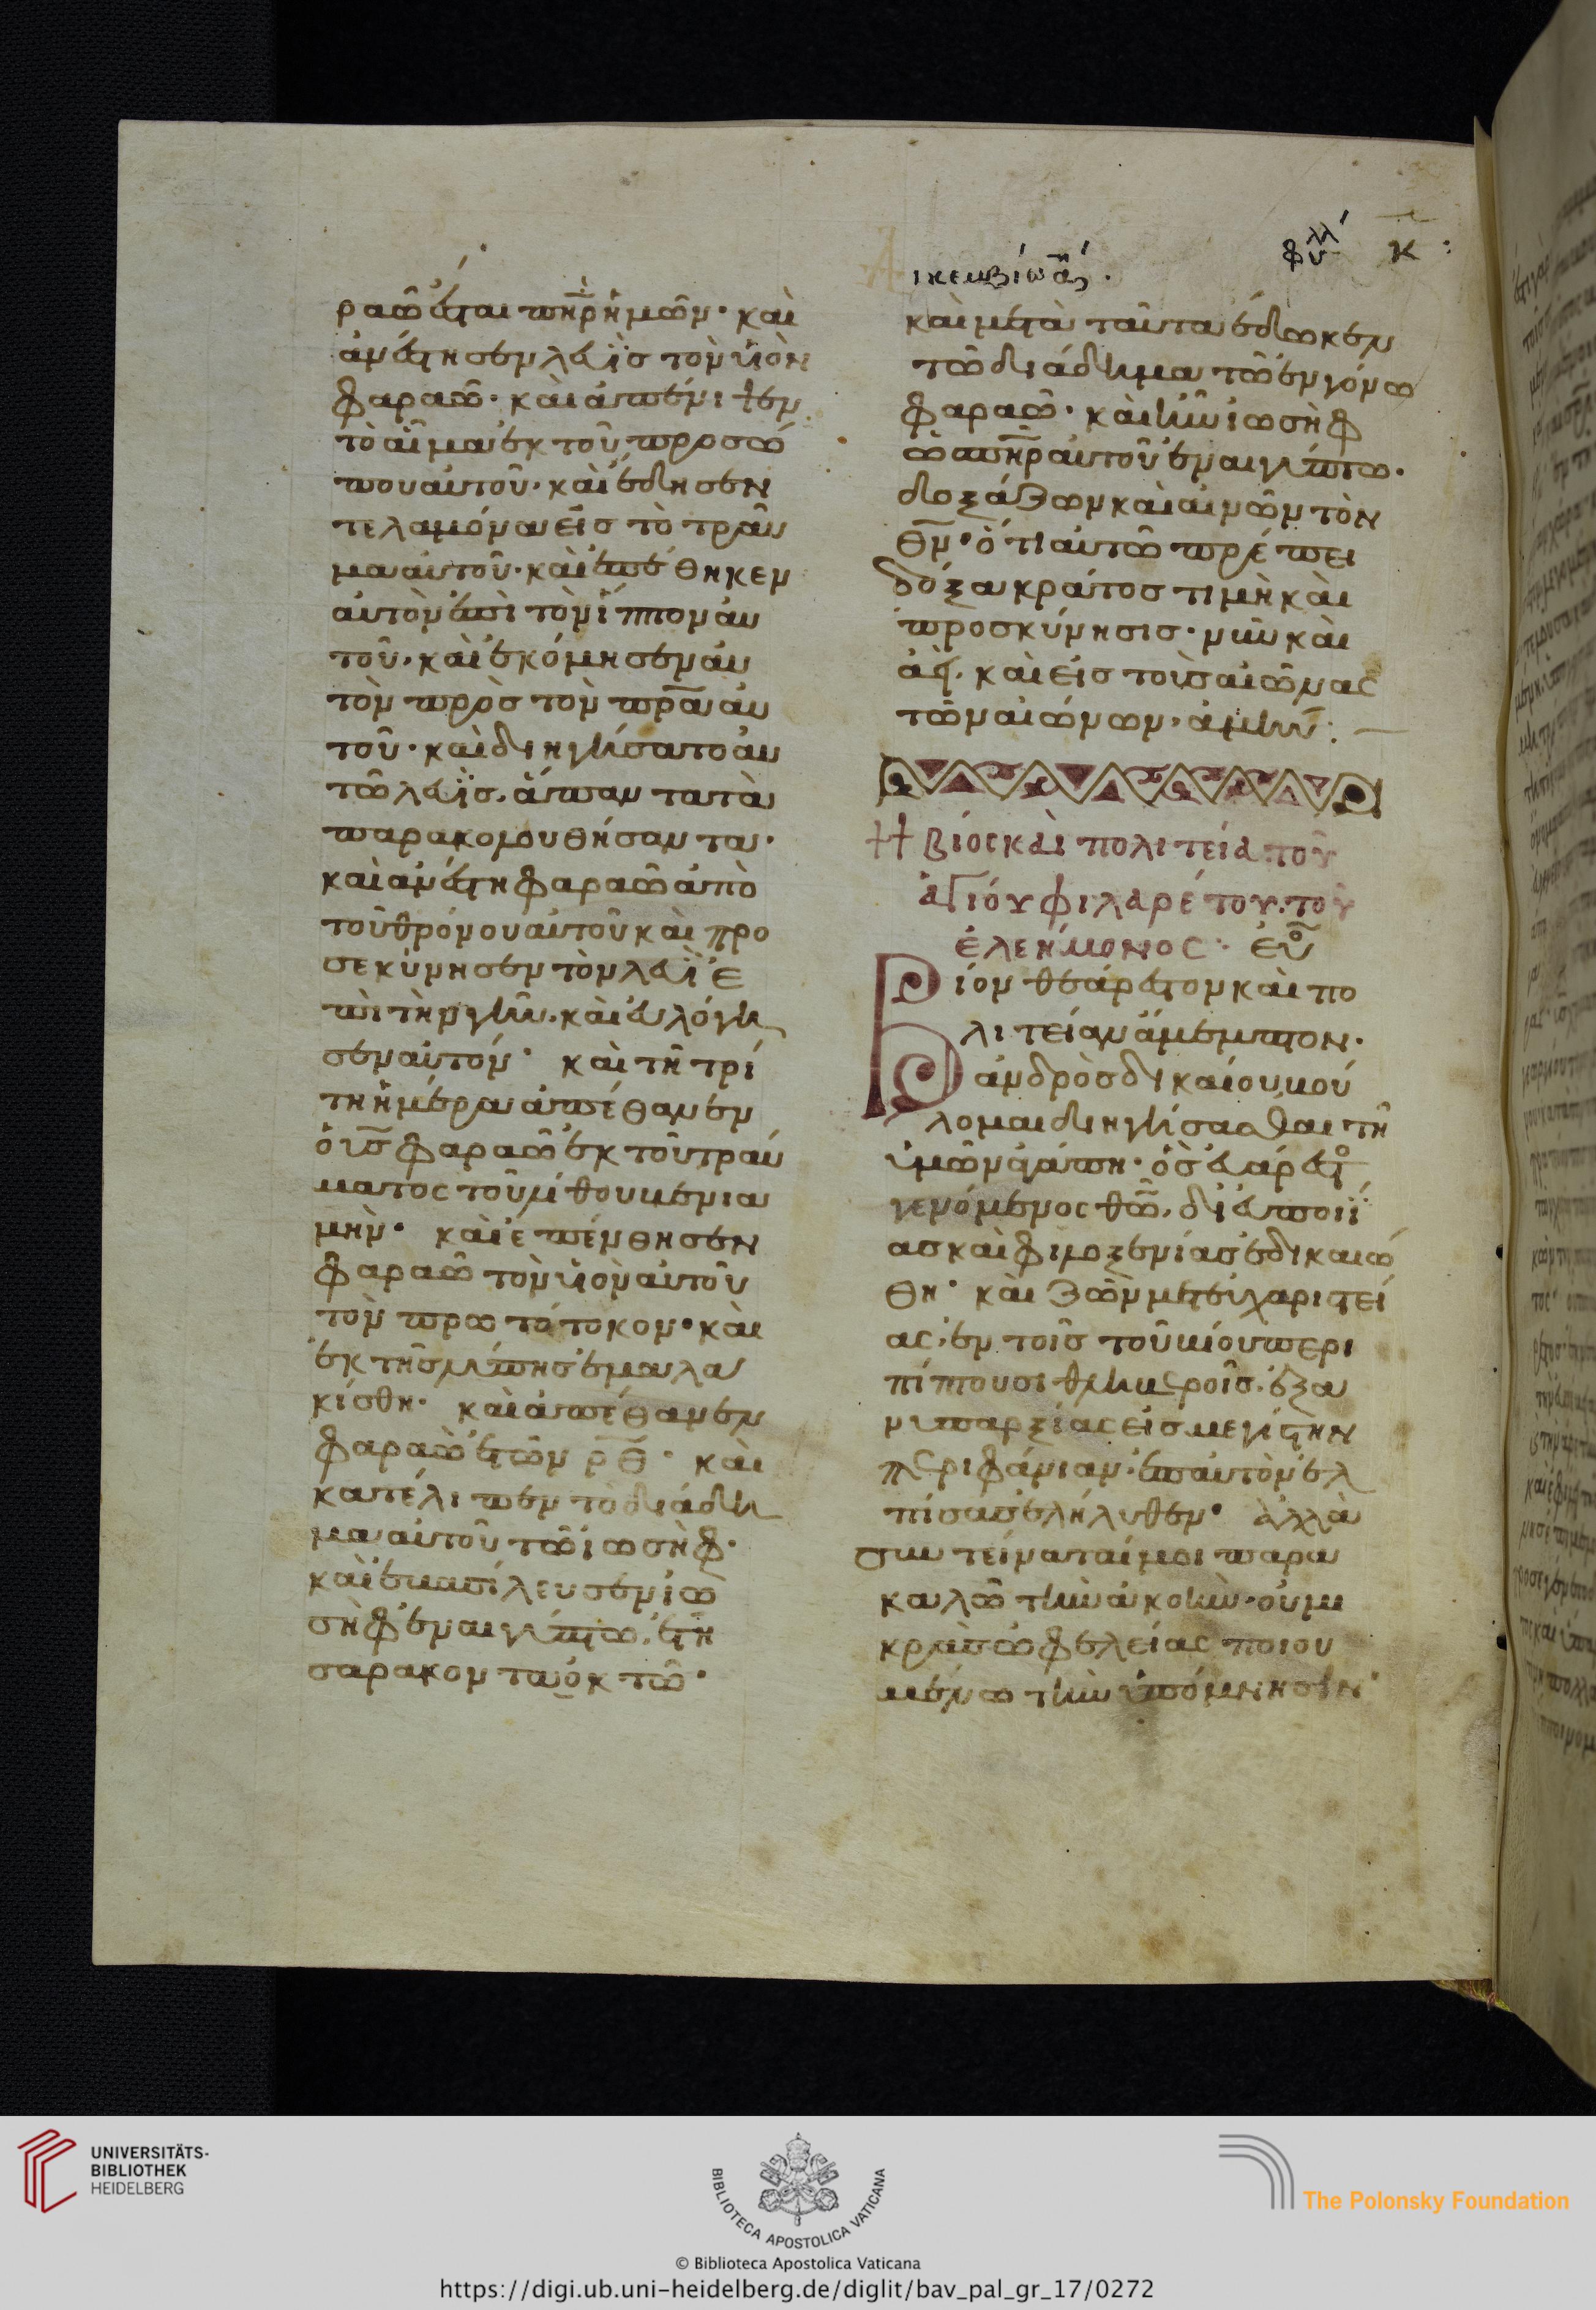 ραῶ ἔται πη̅ρ ἡμῶν· καὶ
ἀνέστησεν λευῒς τὸν υἱὸν
φαραῶ· καὶ ἀπένιψεν
τὸ αἷμα ἐκ τοῦ προσώ
που αὐτοῦ· καὶ ἔδησεν
τελαμόνα εἰς τὸ τραῦ
μα αὐτοῦ· καὶ ἐπέθηκεν
αὐτὸν ἐπὶ τὸν ἵππον αὐ
τοῦ· καὶ ἐκόμησεν αὐ
τὸν πρὸς τὸν πρ̅α αὐ
τοῦ· καὶ διηγήσατο αὐ
τῶ λευῒς. ἅπαντα τὰ
παρακολουθήσαντα·
καὶ ἀνέστη φαραῶ ἀπὸ
τοῦ θρόνου αὐτοῦ καὶ προ
σεκύνησεν τὸν λευῒ ἐ
πὶ τὴν γῆν. καὶ εὐλόγη
σεν αὐτόν· καὶ τῆ τρί
τη ἡμέρα ἀπέθανεν
ὁ υι̅ς φαραῶ ἐκ τοῦ τραύ
ματος τοῦ λίθου βενια
μὴν· καὶ ἐπένθησεν
φαραῶ τὸν υἱὸν αὐτοῦ
τὸν πρωτότοκον· καὶ
ἐκ τῆς λύπης ἐμαλα
κίσθη· καὶ ἀπέθανεν
φαραὼ ἐτῶν ρ̅θ̅· καὶ
κατέλιπεν τὸ διάδη
μα αὐτοῦ τῶ ἰωσὴφ·
καὶ ἐβασίλευσεν ἰω
σὴφ ἐν αἰγύπτω, ἔτη
σαρακοντα ὀκτῶ·
φυλλ´ κ :
καὶ μετὰ ταῦτα ἔδωκεν
τῶ διάδημα τῶ ἐγγόνω
φαραῶ· καὶ ἦν ἰωσὴφ
ὡ πη̅ρ αὐτοῦ ἐν αἰγύπτω·
δοξάζων καὶ αἰνῶν τὸν
θ̅ν· ὅτι αὐτῶ πρέπει
δόξα κράτος τιμὴ καὶ
προσκύνησις· νῦν καὶ
ἀεὶ. καὶ εἰς τοὺς αἰῶνας
τῶν αἰώνων, ἀμήν :
βίος καὶ πολιτεία τοῦ
ἁγίου φιλαρέτου. τοῦ
ἐλεήμονος·
Βίον θεάρεστον καὶ πο
λιτείαν ἄμεμπτον·
ἀνδρὸς δικαίου βού
λομαι διηγήσασθαι τῆ
ὑμῶν ἀγάπη· ὃς εὐάρεστο
γενόμενος θ̅ω, δι εὐποιΐ
ας καὶ φιλοξενίας ἐδικαιώ
θη· καὶ
ας, ἐν τοῖς τοῦ βίου περι
πίπτουσι θλιβεροῖς. ἐξα
νυπαρξίας εἰς μεγίστην
περιφάνιαν· ἐπ αὐτὸν ἐλ
πίσας ἐλήλυθεν· ἀλλὰ
συντείνατέ μοι παρα
καλῶ τὴν ἀκοὴν· οὐ μι
κρᾶς ὠφελείας ποιου
μένω τὴν ὑπόμνησιν·
UNIVERSITÄTS-
BIBLIOTHEK
HEIDELBERG
BIBLIOTECA APOSTOLICA VATICANA
© Biblioteca Apostolica Vaticana
The Polonsky Foundation
https://digi.ub.uni-heidelberg.de/diglit/bav_pal_gr_17/0272